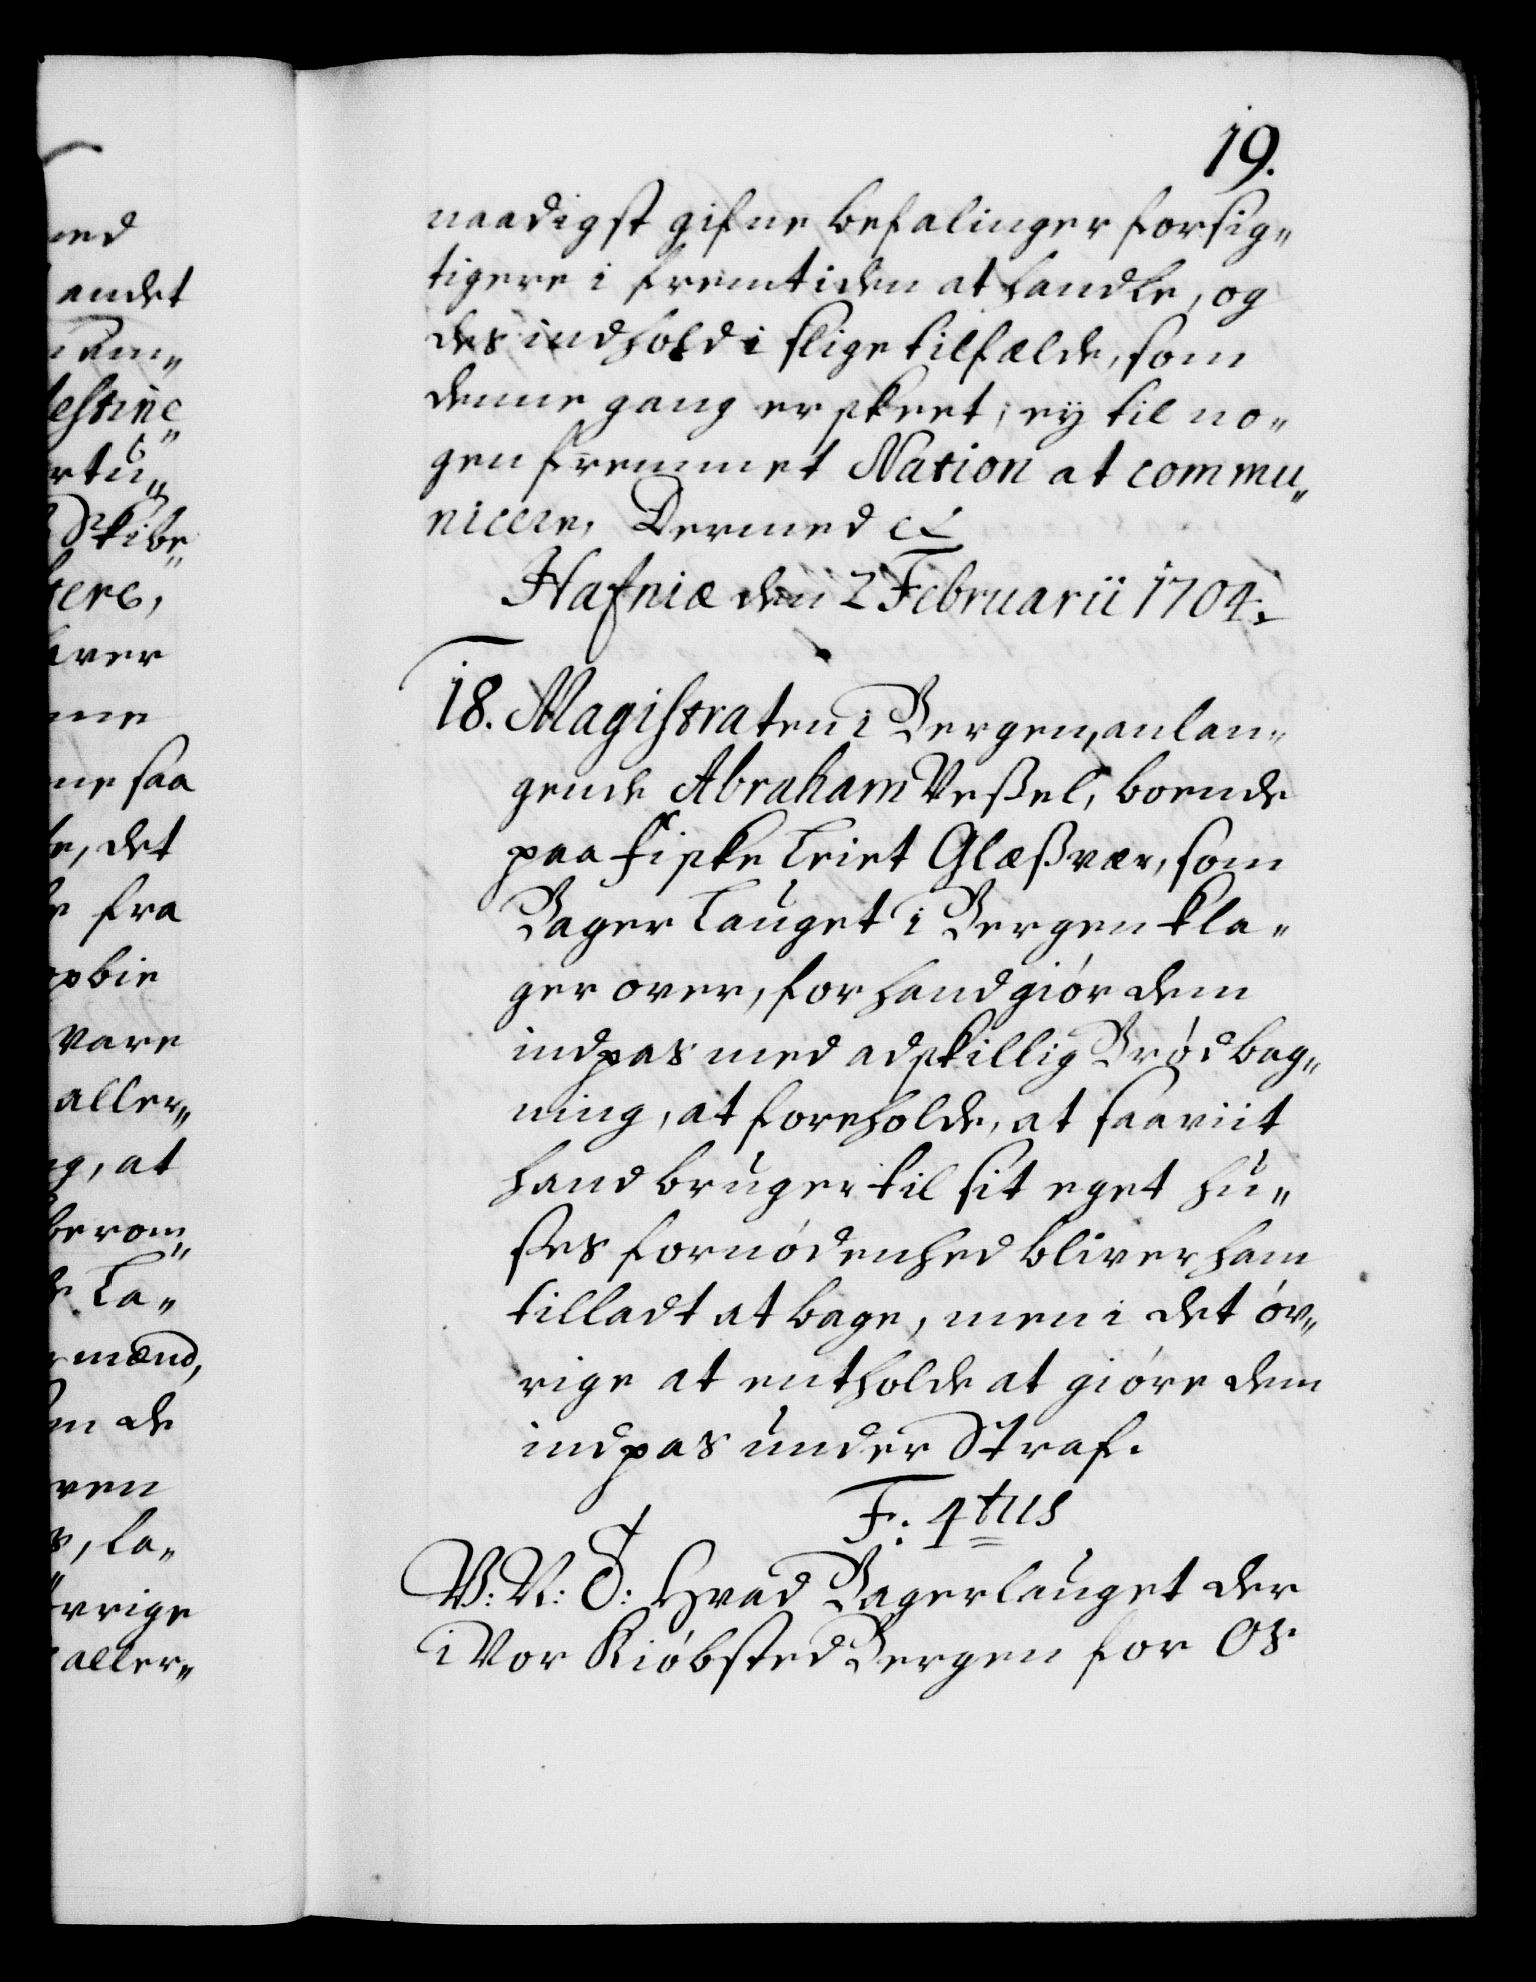 19.
naadigst gifne befalinger forsig„
tigere i fremtiden at handle, og
des indhold i slige tilfælde, som
denne gang er skeet, ey til no„
gen fremmet Nation at commu„
nicere, Dermed etc
Hafniæ den 2 Februarii 1704.
18. Magistraten i Bergen, anlan„
gende Abraham Weßel, boende
paa fiske leiet Glæßvær, som
Bager lauget i Bergen kla„
ger over, for hand giör dem
indpas med adskillig Brödbag„
ning, at foreholde, at saaviit
hand bruger til sit eget hu„
ses fornödenhed bliver ham
tilladt at bage, men i det öv„
rige at entholde at giöre dem
indpas under Straf.
F: 4tus
V: V: G: Hvad Bagerlauget der
i Vor Kiöbsted Bergen for Os
ned
andet
estine
Skibe
tere,
aver
ne saa
det
fra
vare
aller„
at
La„
mænd,
de
ven
la„
vrige
aller„